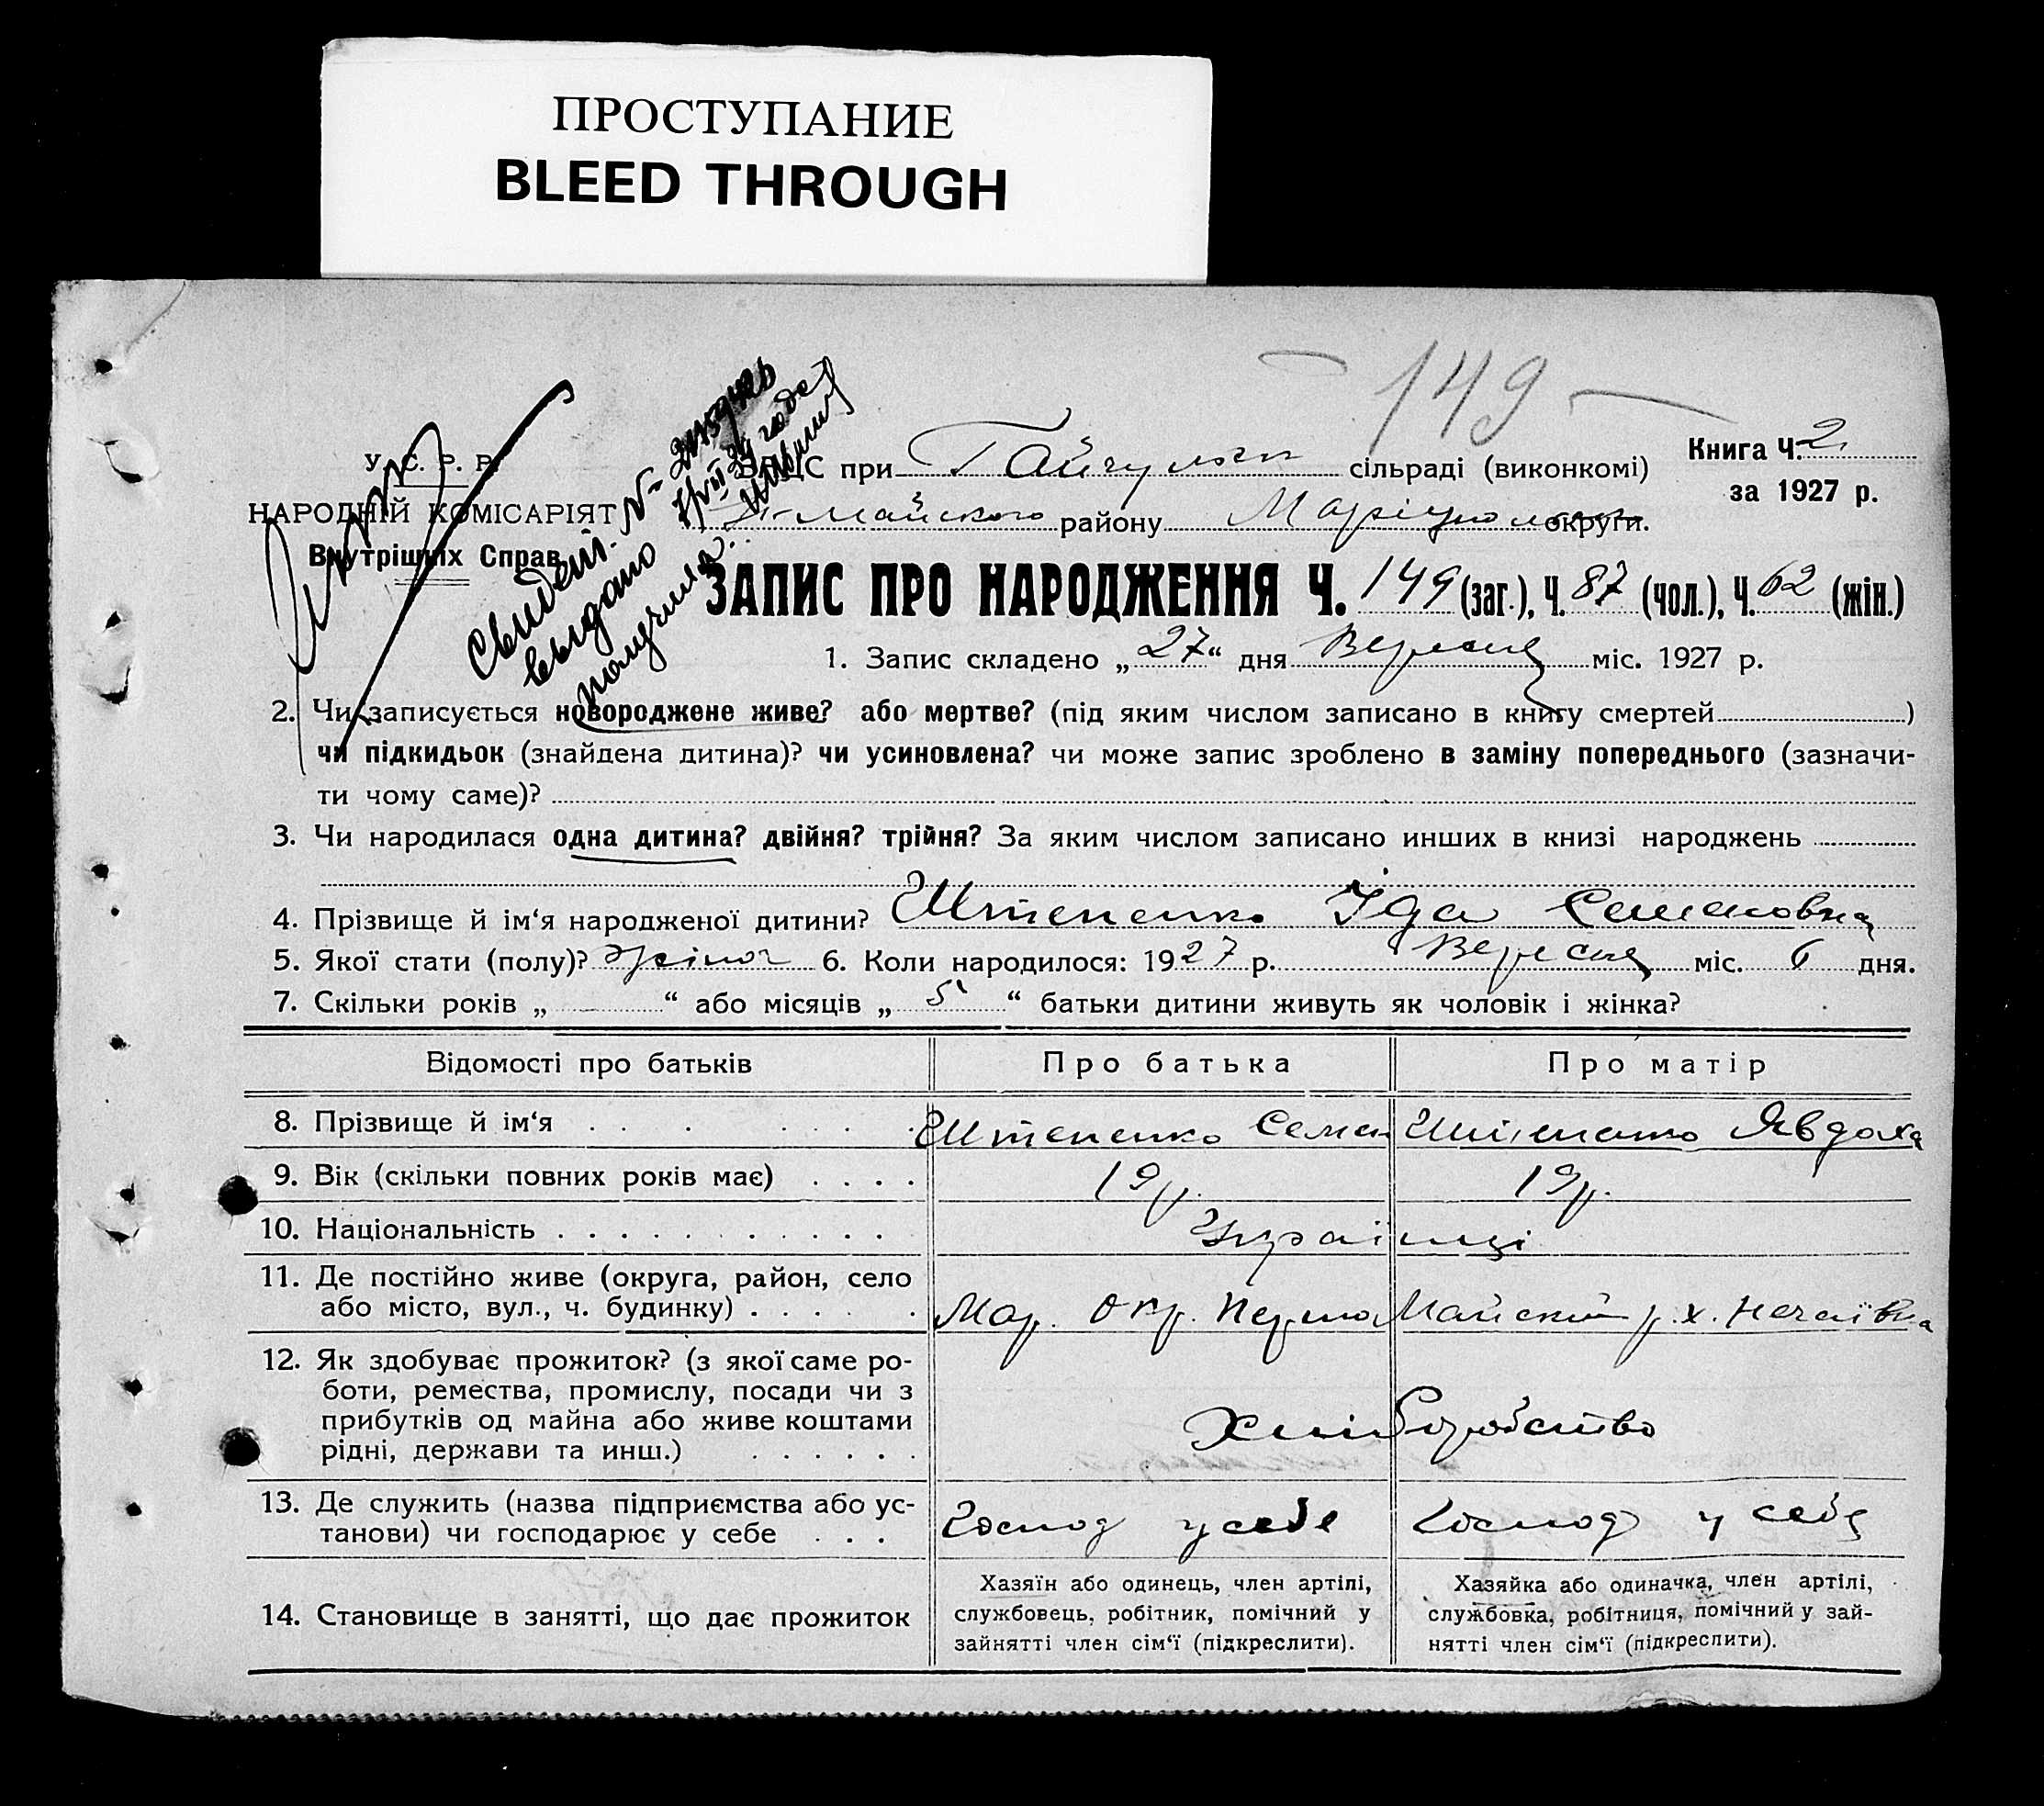 ПРОСТУПАНИЕ
BLEED THROUGH
149
Книга Ч. 2
за 1927 р.
У. С. Р. Р.
НАРОДНІЙ КОМІСАРІЯТ
Внутрішніх Справ
Свидет. №
выдано
получила
ЗАГС при сільраді (виконкомі)
Майского району округи.
ЗАПИС ПРО НАРОДЖЕННЯ Ч. 149 (заг.), Ч. 87 (чол.), Ч. 62 (жін.)
1. Запис складено „27“ дня Вересня міс. 1927 р.
2. Чи записується новороджене живе? або мертве? (під яким числом записано в книгу смертей )
чи підкидьок (знайдена дитина)? чи усиновлена? чи може запис зроблено в заміну попереднього (зазначи-
ти чому саме)?
3. Чи народилася одна дитина? двійня? трійня? За яким числом записано инших в книзі народжень
4. Прізвище й ім‘я народженої дитини? Штепенко Іда Семеновна
5. Якої стати (полу)? жіноч 6. Коли народилося: 1927 р. Вересня міс. 6 дня.
7. Скільки років „ “ або місяців „ 5 “ батьки дитини живуть як чоловік і жінка?
Відомості про батьків Про батька Про матір
8. Прізвище й ім‘я Штепенко Семен Штепенко Явдоха
9. Вік (скільки повних років має) 19 р. 19 р.
10. Національність Українці
11. Де постійно живе (округа, район, село
або місто, вул., ч. будинку) Мар. Окр. Першо Майский р. х. Нечаївка
12. Як здобуває прожиток? (з якої саме ро-
боти, ремества, промислу, посади чи з
прибутків од майна або живе коштами
рідні, держави та инш.) Хліборобство
13. Де служить (назва підприємства або ус-
танови) чи господарює у себе Господ у себе Господ у себе
14. Становище в занятті, що дає прожиток
Хазяїн або одинець, член артілі,
службовець, робітник, помічний у
зайнятті член сім‘ї (підкреслити).
Хазяйка або одиначка, член артілі,
службовка, робітниця, помічний у зай-
нятті член сім‘ї (підкреслити).